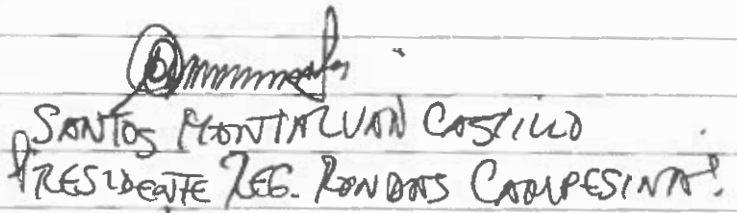 SANTOS MONTALVAN CASTILLO
PRESIDENTE REG. RONDAS CAMPESINAS.